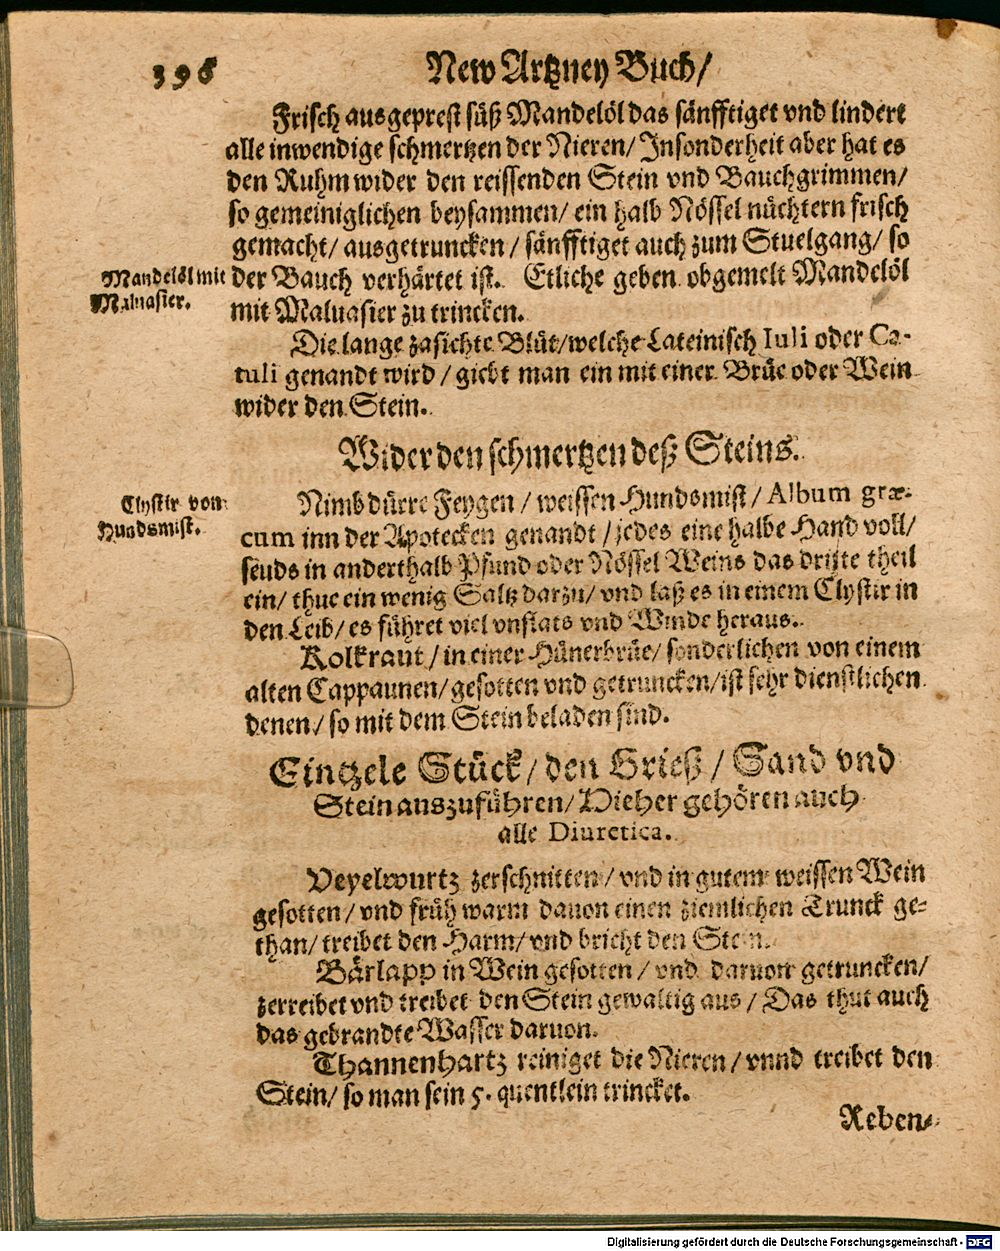 396 New Artzney Buch/
Frisch ausgeprest süß Mandelöl das sänfftiget vnd lindert
alle inwendige schmertzen der Nieren/ Insonderheit aber hat es
den Ruhm wider den reissenden Stein vnd Bauchgrimmen/
so gemeiniglichen beysammen/ ein halb Nössel nüchtern frisch
gemacht/ ausgetruncken / sänfftiget auch zum Stuelgang/ so
Mandelöl mit
Maluasier.
der Bauch verhärtet ist. Etliche geben obgemelt Mandelöl
mit Maluasier zu trincken.
Die lange zasichte Blüt/welche Lateinisch Iuli oder Ca-
tuli genandt wird / giebt man ein mit einer Brüe oder Wein
wider den Stein.
Wider den schmertzen deß Steins.
Clystir von
Hundsmist.
Nimb dürre Feygen / weissen Hundsmist / Album græ-
cum inn der Apotecken genandt / jedes eine halbe Hand voll/
seuds in anderthalb Pfund oder Nössel Weins das dritte theil
ein/ thue ein wenig Saltz darzu/ vnd laß es in einem Clystir in
den Leib/ es führet viel vnflats vnd Winde heraus.
Kolkraut / in einer Hünerbrüe/ sonderlichen von einem
alten Cappaunen/ gesotten vnd getruncken/ist sehr dienstlichen
denen / so mit dem Stein beladen sind.
Eintzele Stück / den Grieß / Sand vnd
Stein auszuführen/ Hieher gehören auch
alle Diuretica.
Veyelwurtz zerschnitten / vnd in gutem weissen Wein
gesotten / vnd früh warm dauon einen ziemlichen Trunck ge-
than/ treibet den Harm/ vnd bricht den Stein.
Bärlapp in Wein gesotten / vnd daruon getruncken/
zerreibet vnd treibet den Stein gewaltig aus / Das thut auch
das gebrandte Wasser daruon.
Thannenhartz reiniget die Nieren / vnnd treibet den
Stein/ so man sein 5. quentlein trincket.
Reben-
Digitalisierung gefördert durch die Deutsche Forschungsgemeinschaft - DFG